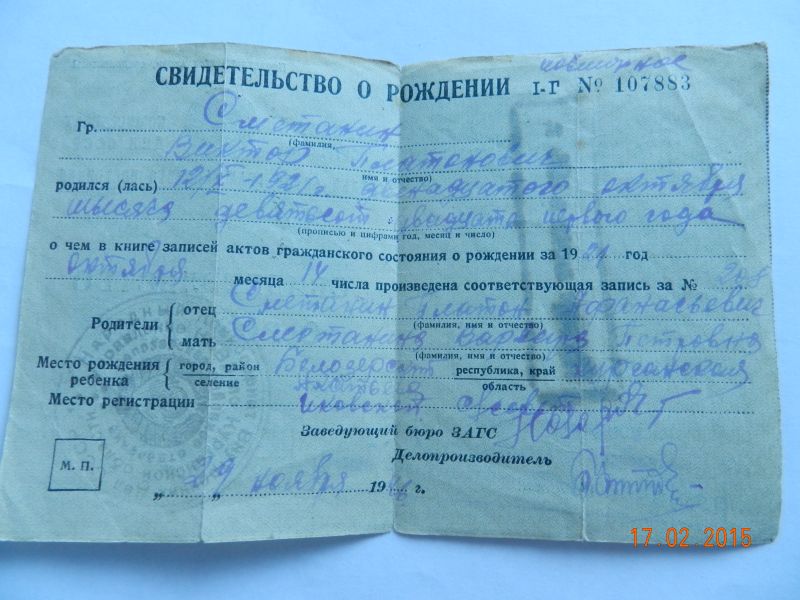 повторное
СВИДЕТЕЛЬСТВО О РОЖДЕНИИ I-Г № 107883
Гр. Сметанин
(фамилия,
Виктор Платонович
имя и отчество)
родился (лась) 12/X-1921г. двенадцатого октября
тысяча девятьсот двадцать первого года
(прописью и цифрами год, месяц и число)
о чем в книге записей актов гражданского состояния о рождении за 1921 год
октября месяца 14 числа произведена соответствующая запись за № 208
Родители
отец Сметанин Платон Афанасьевич
(фамилия, имя и отчество)
мать Сметанина Петровна
(фамилия, имя и отчество)
Место рождения ребенка
город, район
селение
республика, край
область
Курганская
Место регистрации Иковский
Заведующий бюро ЗАГС
Делопроизводитель
М. П.
„ 29 " ноября 1946 г.
17.02.2015